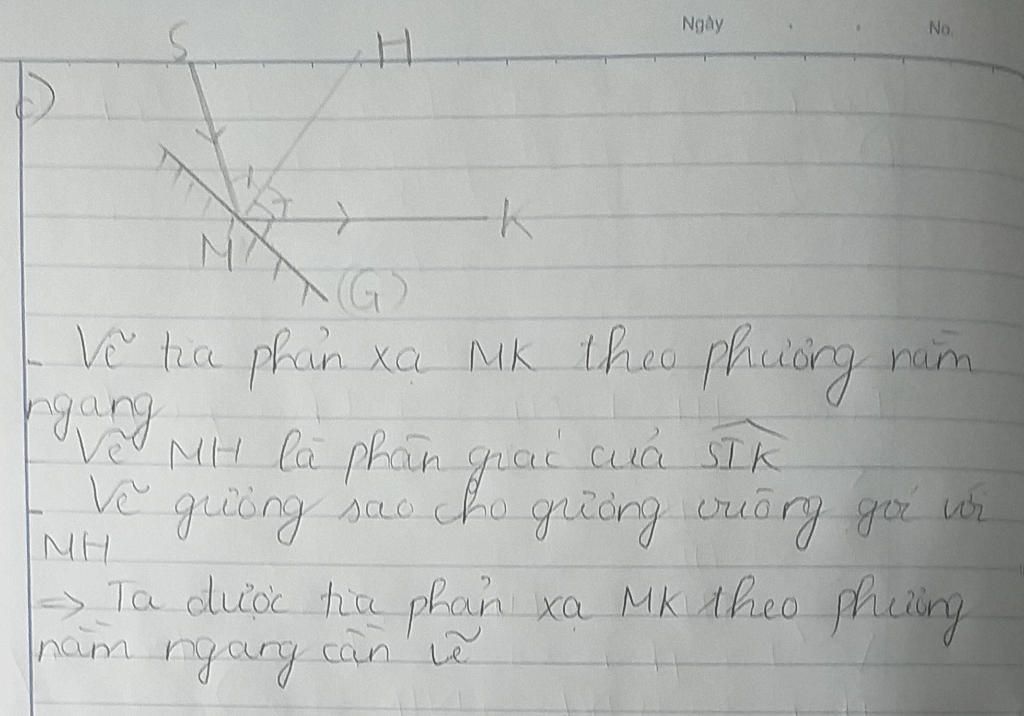 Ngày No.
S H
c)
M I K
(G)
- Vẽ tia phản xạ MK theo phương nằm
ngang
Vẽ MH là phân giác của STK
- Vẽ gương sao cho gương vuông góc với
MH
=> Ta được tia phản xạ MK theo phương
nằm ngang cần vẽ